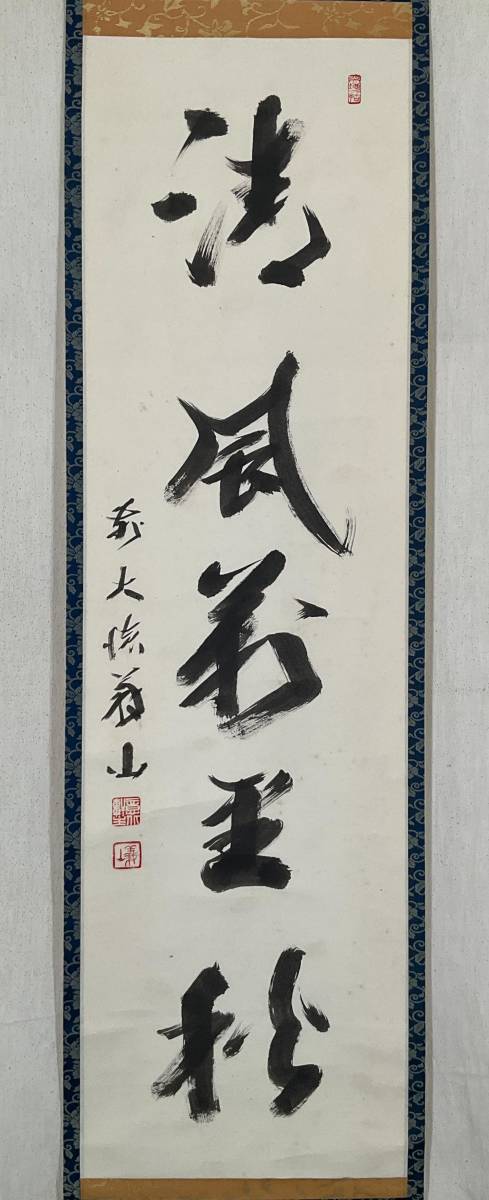 清風萬里秋
前大徳義山